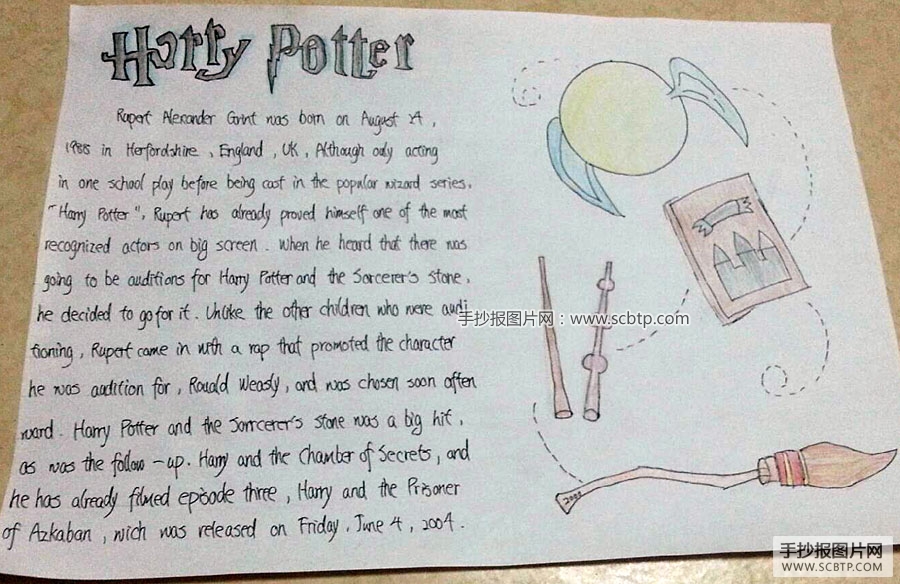 Harry Potter
Rupert Alexander Grint was born on August 24,
1988 in Herfordshire, England, UK, Although only acting
in one school play before being cast in the popular wizard series,
"Harry Potter", Rupert has already proved himself one of the most
recognized actors on big screen. When he heard that there was
going to be auditions for Harry Potter and the Sorcerer's Stone,
he decided to go for it. Unlike the other children who were audi
tioning, Rupert came in with a rap that promoted the character
he was audition for, Rouald Weasly, and was chosen soon after
ward. Harry Potter and the Sorrcerer's stone was a big hit,
as was the follow-up. Harry and the Chamber of Secrets, and
he has already filmed episode three, Harry and the Prisoner
of Azkaban, wich was released on Friday, June 4, 2004.
手抄报图片网：www.scbtp.com
2000
手抄报图片网
WWW.SCBTP.COM